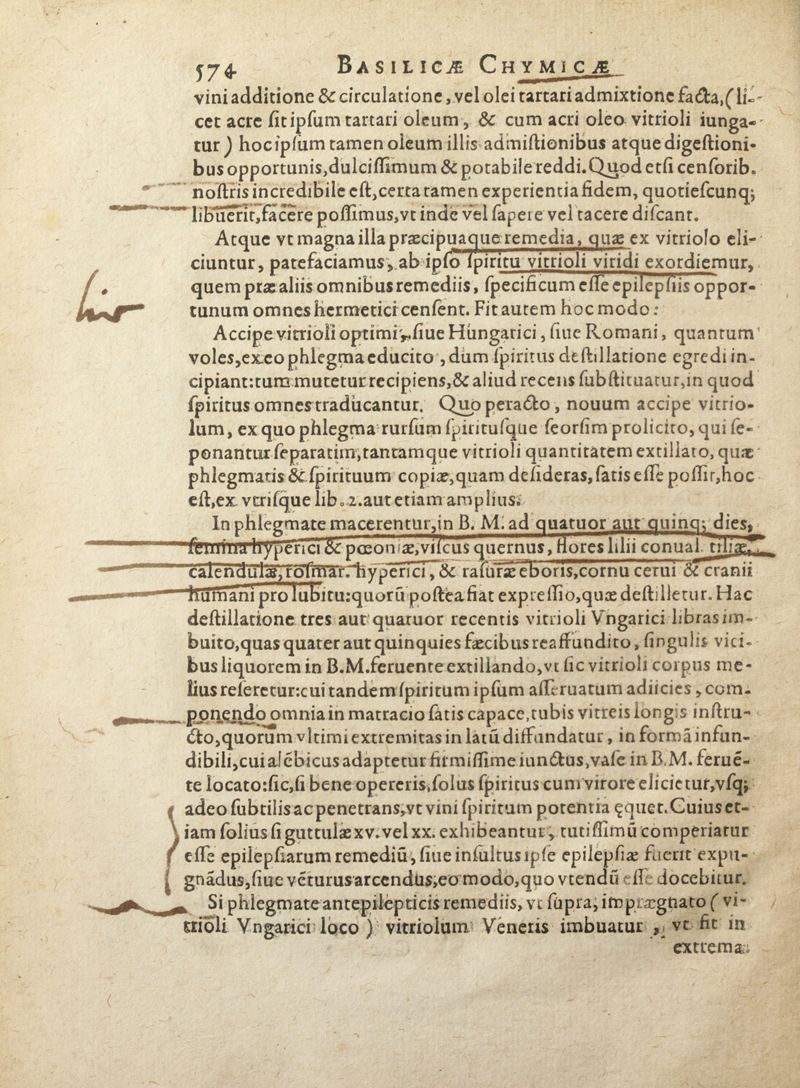 574 BASILICÆ CHYMICÆ
vini additione & circulatione, vel olei tartari admixtione facta, (li-
cet acre sit ipsum tartari oleum, & cum acri oleo vitrioli iunga-
tur) hoc ipsum tamen oleum illis admistionibus atque digestioni-
bus opportunis, dulcissimum & potabile reddi. Quod etsi censorib.
nostris incredibile est, certa tamen experientia fidem, quotiescunq;
libuerit, facere possimus, vt inde vel sapere vel tacere discant.
Atque vt magna illa præcipuaque remedia, quæ ex vitriolo eli-
ciuntur, patefaciamus, ab ipso spiritu vitrioli viridi exordiemur,
quem præ aliis omnibus remediis, specificum esse epilepsiis oppor-
tunum omnes hermetici censent. Fit autem hoc modo:
Accipe vitrioli optimi, siue Hungarici, siue Romani, quantum
voles, ex eo phlegma educito, dum spiritus destillatione egredi in-
cipiant: tum mutetur recipiens, & aliud recens substituatur, in quod
spiritus omnes traducantur. Quo peracto, nouum accipe vitrio-
lum, ex quo phlegma rursum spiritusque seorsim prolicito, qui se-
ponantur separatim, tantamque vitrioli quantitatem extillato, quæ
phlegmatis & spirituum copiæ, quam desideras, satis esse possit, hoc
est, ex vtrisque lib. 2. aut etiam amplius.
In phlegmate macerentur, in B. M. ad quatuor aut quinq; dies,
semina hyperici & pœoniæ, viscus quernus, flores lilii conual. tiliæ,
calendulæ, rosmar. hyperici, & rasuræ eboris, cornu cerui & cranii
humani pro lubitu: quorū postea fiat expressio, quæ destilletur. Hac
destillatione tres aut quatuor recentis vitrioli Vngarici libras im-
buito, quas quater aut quinquies fæcibus reaffundito, singulis vici-
bus liquorem in B.M. feruente extillando, vt sic vitrioli corpus me-
lius reseretur: cui tandem spiritum ipsum asseruatum adiicies, com-
ponendo omnia in matracio satis capace, tubis vitreis longis instru-
cto, quorum vltimi extremitas in latū diffundatur, in formā infun-
dibili, cui alēbicus adaptetur firmissime iunctus, vase in B.M. feruē-
te locato: sic, si bene opereris, solus spiritus cum virore elicietur, vsq;
adeo subtilis ac penetrans, vt vini spiritum potentia ęquet. Cuius et-
iam solius si guttulæ xv. vel xx. exhibeantur, tutissimū comperiatur
esse epilepsiarum remediū, siue insultus ipse epilepsiæ fuerit expu-
gnādus, siue vēturus arcendus, eo modo, quo vtendū esse docebitur.
Si phlegmate antepilepticis remediis, vt supra, imprægnato (vi-
trioli Vngarici loco) vitriolum Veneris imbuatur, vt fit in
extrema